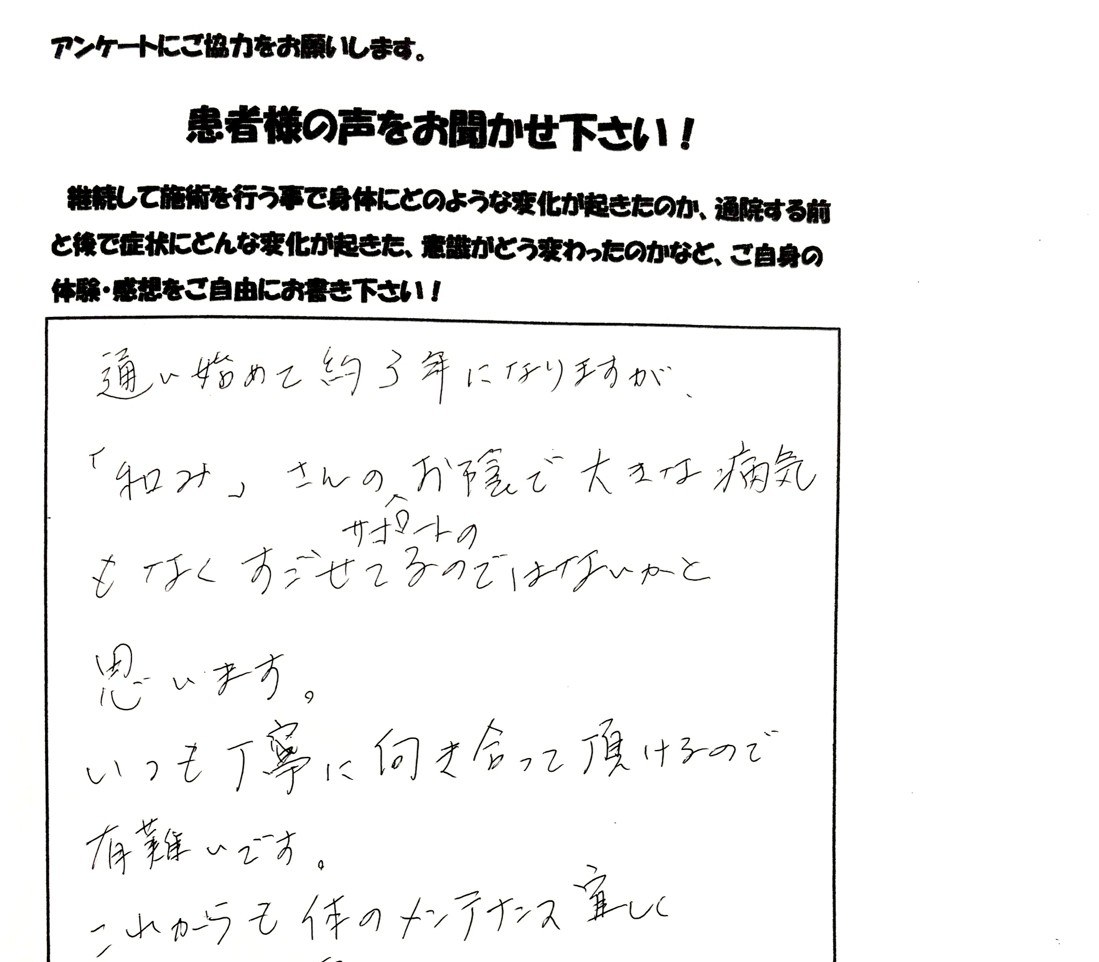 アンケートにご協力をお願いします。
患者様の声をお聞かせ下さい！
継続して施術を行う事で身体にどのような変化が起きたのか、通院する前
と後で症状にどんな変化が起きた、意識がどう変わったのかなど、ご自身の
体験・感想をご自由にお書き下さい！
通い始めて約3年になりますが、
「和み」さんのお陰で大きな病気
サポートの
もなくすごせてるのではないかと
思います。
いつも丁寧に向き合って頂けるので
有難いです。
これからも体のメンテナンス宜しく